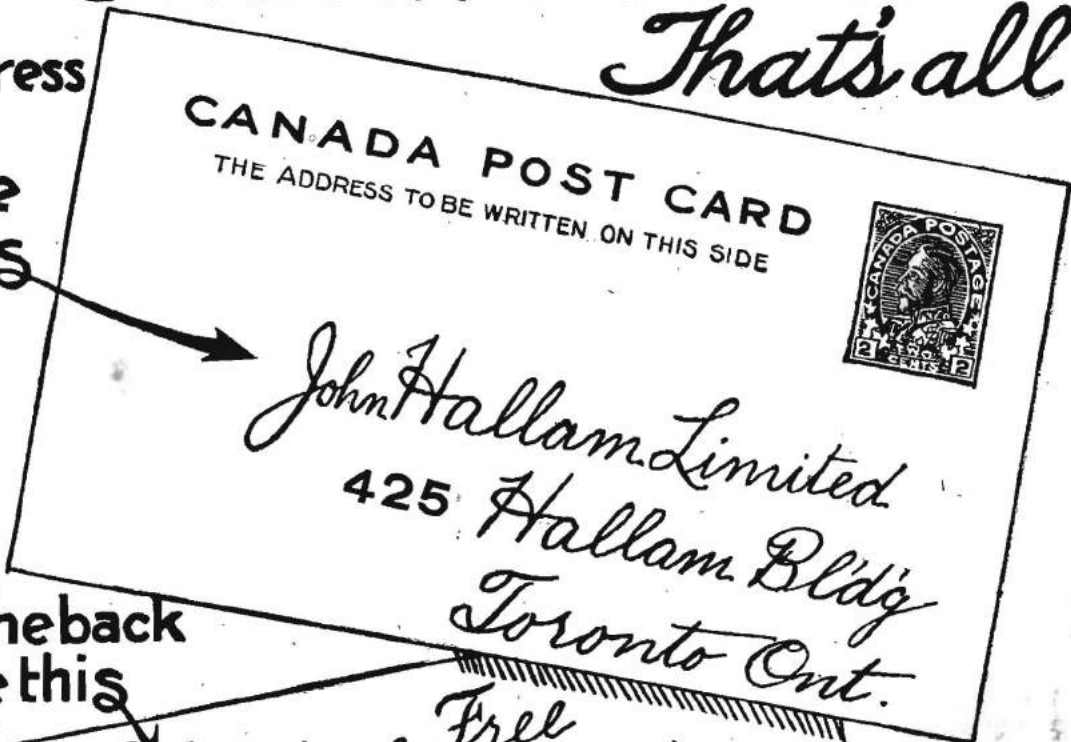 That's all
CANADA POST CARD
THE ADDRESS TO BE WRITTEN ON THIS SIDE
CANADA POSTAGE
2 TWO CENTS 2
John Hallam Limited
425 Hallam Bl'd'g
Toronto Ont.
this
Free